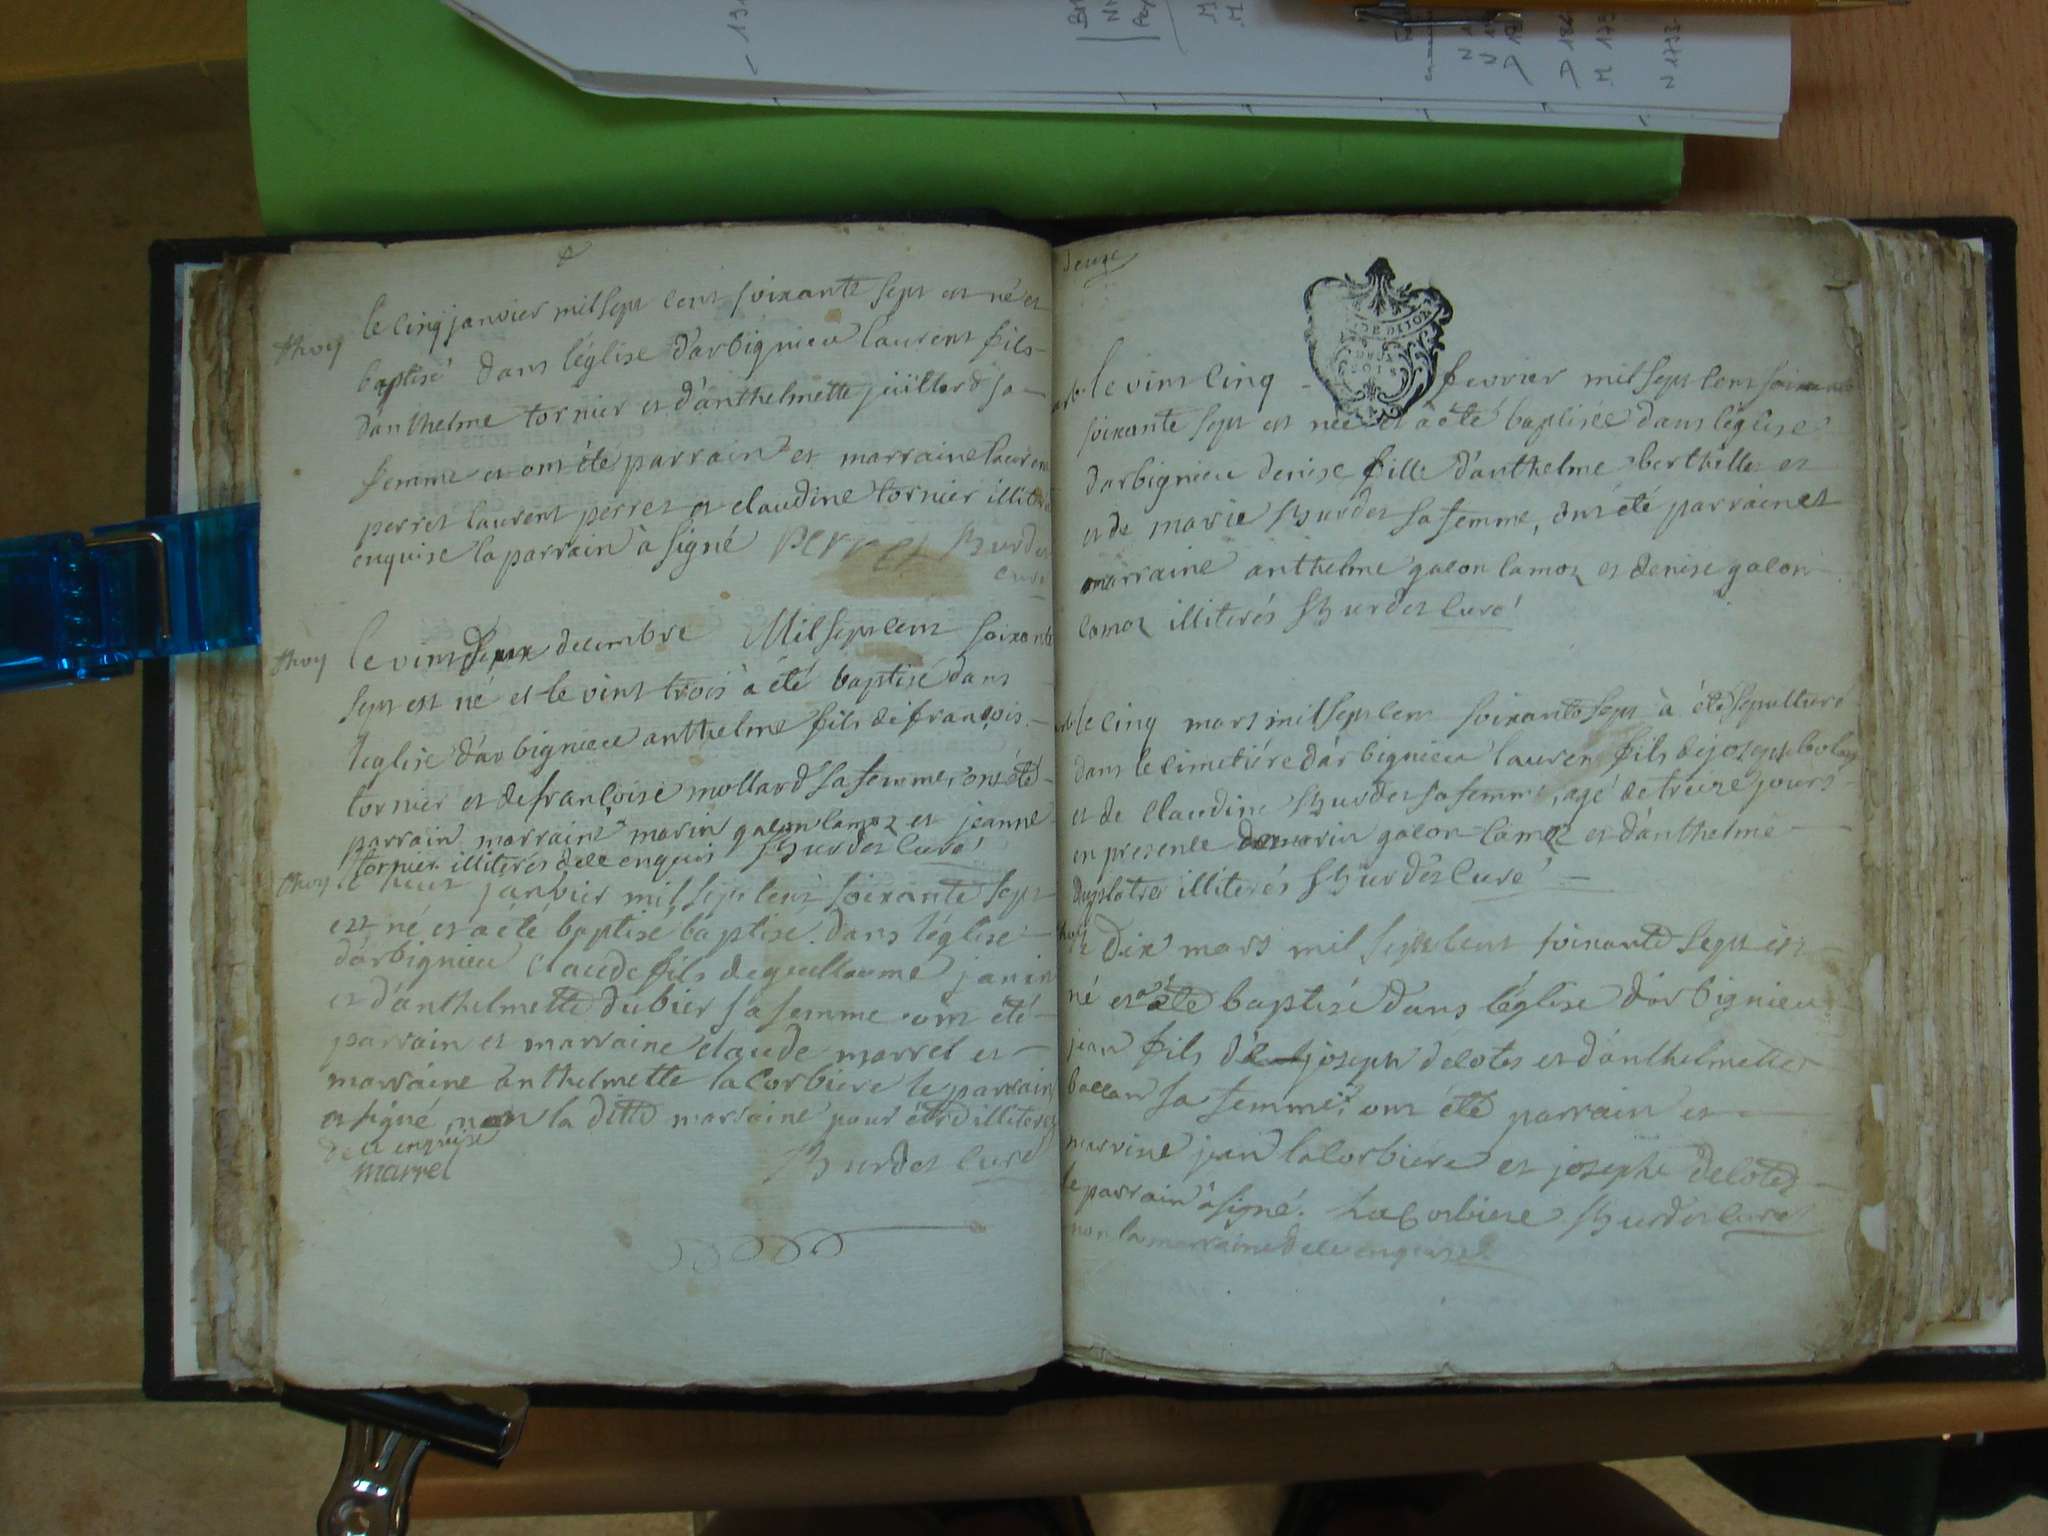 thoy le cinq janvier mil sept cent soixante sept est né et
baptisé dans l'église d'arbignieu laurent fils
d'anthelme tornier et d'anthelmette juillard sa
femme et ont été parrain et marraine laurent
perret laurent perret et claudine tornier illiterée
enquise la parrain à signé perret Burdet
curé
thoy le vint deux decembre Mil sept cent soixante
sept est né et le vint trois à été baptisé dans
l'eglise d'arbignieu anthelme fils de françois
tornier et de françoise mollard sa femme, ont été
parrain marraine marin galon lamoz et jeanne
tornier illiterés de ce enquis Burdet Curé
thoy le huit janvier mil sept cent soixante sept
est né et a été baptisé baptisé dans l'église
d'arbignieu claude fils de guillaume janin
et d'anthelmette dubier sa femme ont été
parrain et marraine claude marrel et
marraine anthelmette la Corbiere le parrain
et signé non la ditte marraine pour être illiterée
de ce enquise
marrel Burdet Curé
arb. le vint cinq fevrier mil sept cent soixante
GEN DE DIJON
soixante sept est née et à été baptisée dans l'église
d'arbignieu denise fille d'anthelme berthillet et
et de marie Burdet sa femme, ont été parrain et
marraine anthelme galon lamoz et denise galon
lamoz illiterés Burdet Curé
arb. le cinq mars mil sept cent soixante sept à été sepulturé
dans le cimetiére d'arbignieu laurent fils de joseph bolon
et de claudine Burdet sa femme, agé de treize jours
en presence de marin galon lamoz et d'anthelme
duplatre illiterés Burdet Curé
thoy le dix mars mil sept cent soixante sept est
né et a été baptisé dans l'église d'arbignieu
jean fils de joseph delotes et d'anthelmette
ballon sa femme, ont été parrain et
marrine jean la Corbiere et josephe delotes
le parrain à signé. La Corbiere Burdet Curé
non la marraine de ce enquise